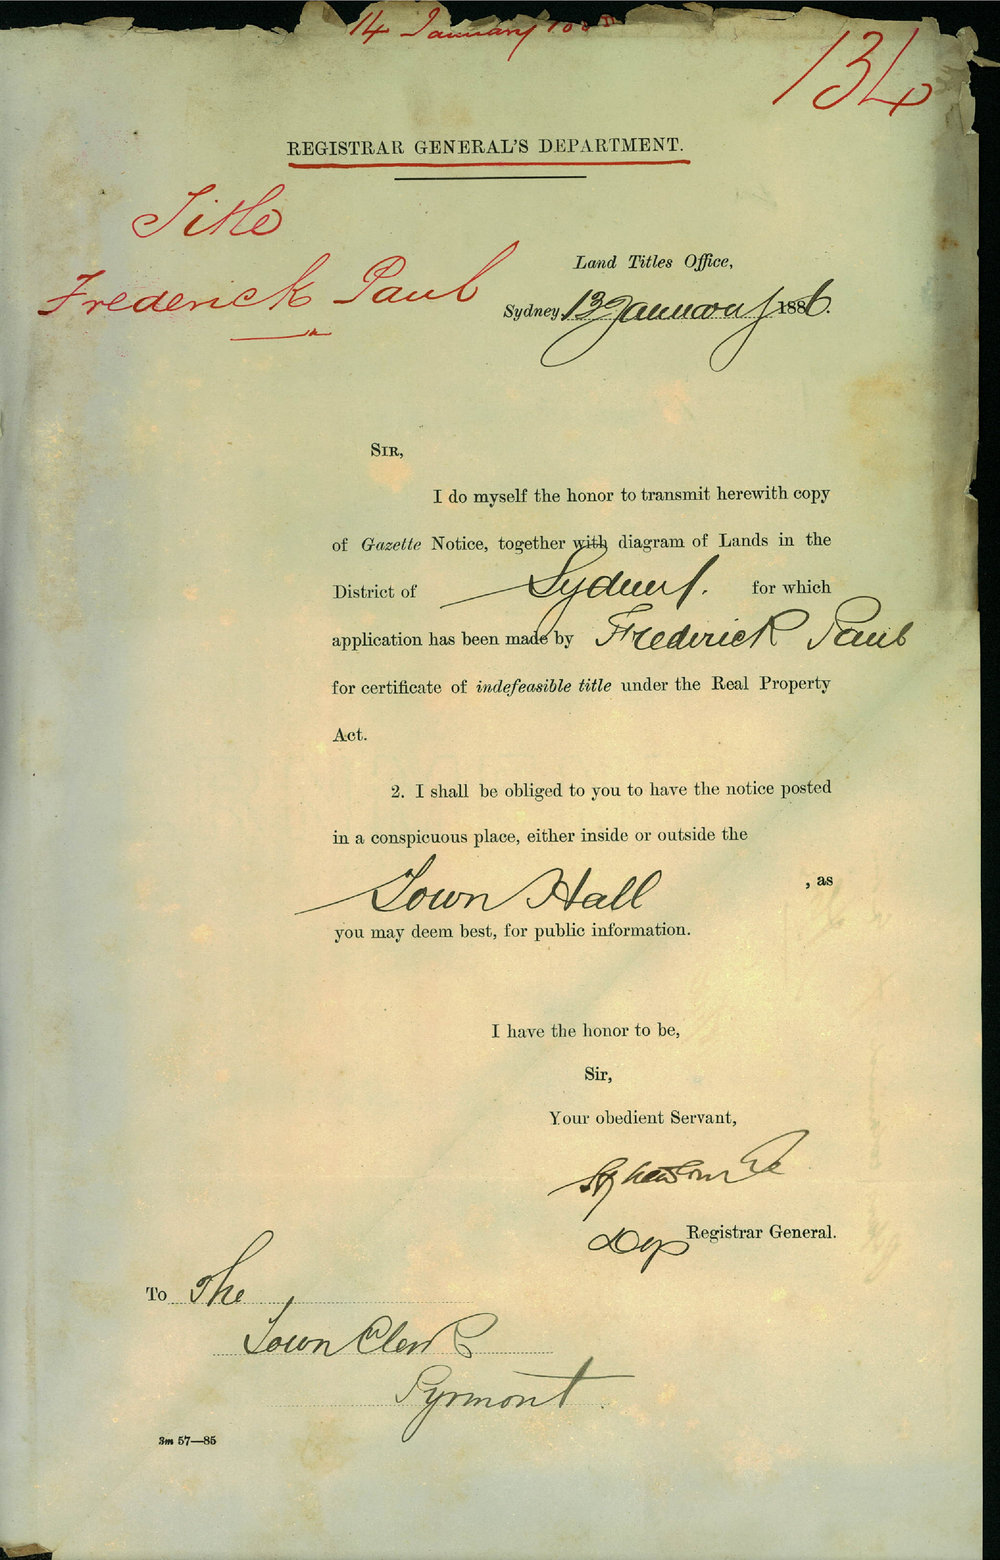 14 January
134
REGISTRAR GENERAL'S DEPARTMENT.
Title
Frederick Paul
Land Titles Office,
Sydney, 13 January 1886.
SIR,
I do myself the honor to transmit herewith copy
of Gazette Notice, together with diagram of Lands in the
District of Sydney. for which
application has been made by Frederick Paul
for certificate of indefeasible title under the Real Property
Act.
2. I shall be obliged to you to have the notice posted
in a conspicuous place, either inside or outside the
Town Hall , as
you may deem best, for public information.
I have the honor to be,
Sir,
Your obedient Servant,
Dep Registrar General.
To The
Town Clerk
Pyrmont.
3m 57—85